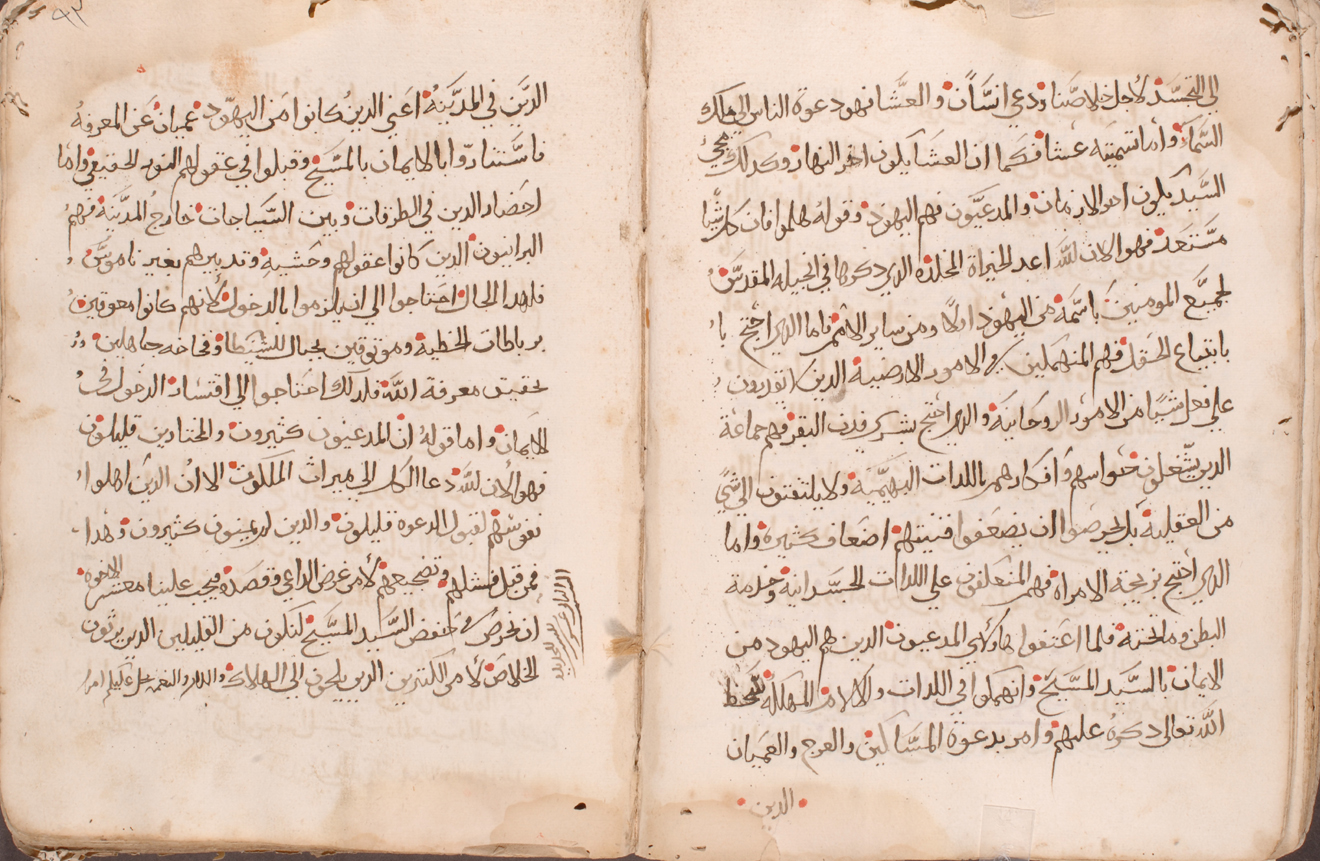 الى التجسد لاجل خلاصنا ودعي انسان والعشا فهو دعوة الناس الى ملك
السماء وانما سميته عشا فكما ان العشا يكون اخر النهار وكدلك مجي
السيد يكون اخر الازمان والمدعيون فهم اليهود وقوله هلموا فان كل شيا
مستعد فهو الان لله اعد الخيراة المخلده الدي دكرها في انجيله المقدس
لجميع المومنين باسمه من اليهود اولا ومن ساير الامم فاما الدي احتج با
بابتياع الحقل فهم المنهملين في الامور الارضية الدين لا يقدرون
على فعل شيا من الامور الروحانية والدي احتج بشرى فدن البقر فهم جماعة
الدين يشغلون حواسهم وافكارهم باللدات البهمية ولا يلتفتون الى شي
من العقلية بل يحرصوا ان يضعفوا قنيتهم اضعاف كثيرة واما
الدي احتج بزيجة الامراة فهم المتعلقون على اللدات الجسدانية وخدمة
البطن وما تحته فلما اعتفوا هاولاي المدعيون الدين هم اليهود من
الايمان بالسيد المسيح وانهمكوا في اللدات والالام المهلكة سخط
الله تعالى دكره عليهم وامر بدعوة المساكين والعرج والعميان
الدين
الدين في المدينة اعني الدين كانوا من اليهود عميان عن المعرفة
فاستنادوا بالايمان بالمسيح وقبلوا في عقولهم النور الحقيقي واما
احضار الدين في الطرقات وبين السياجات خارج المدينة فهم
البرانيون الدين كانوا عقولهم وحشية وتدبيرهم بغير ناموس
فلهدا الحال احتاجوا الى ان يلزموا بالدخول لانهم كانوا معوقين
برباطات الخطية وموثوقين بحبال الشيطان وفخاخه جاهلين
بحقيق معرفة الله فلدلك احتاجوا الى اقتسار الدخول الى
الايمان واما قوله ان المدعيون كثيرون والمختارين قليلون
فهو الان لله دعا الكل الى ميراث الملكوت الا ان الدين اهلوا
نفوسهم لقبول الدعوة قليلون والدين لم يجيبون كثيرون وهدا
فمن قبل فشلهم وتضجيعهم لامر غرض الداعي وقصده فيجب علينا معشر الاخوة
ان نحرص في حفض السيد المسيح لنكون من القليلين الدين يرثون
الخلاص لا من الكثيرين الدين يلجون الى الهلاك والنعمة تحل عليكم امين